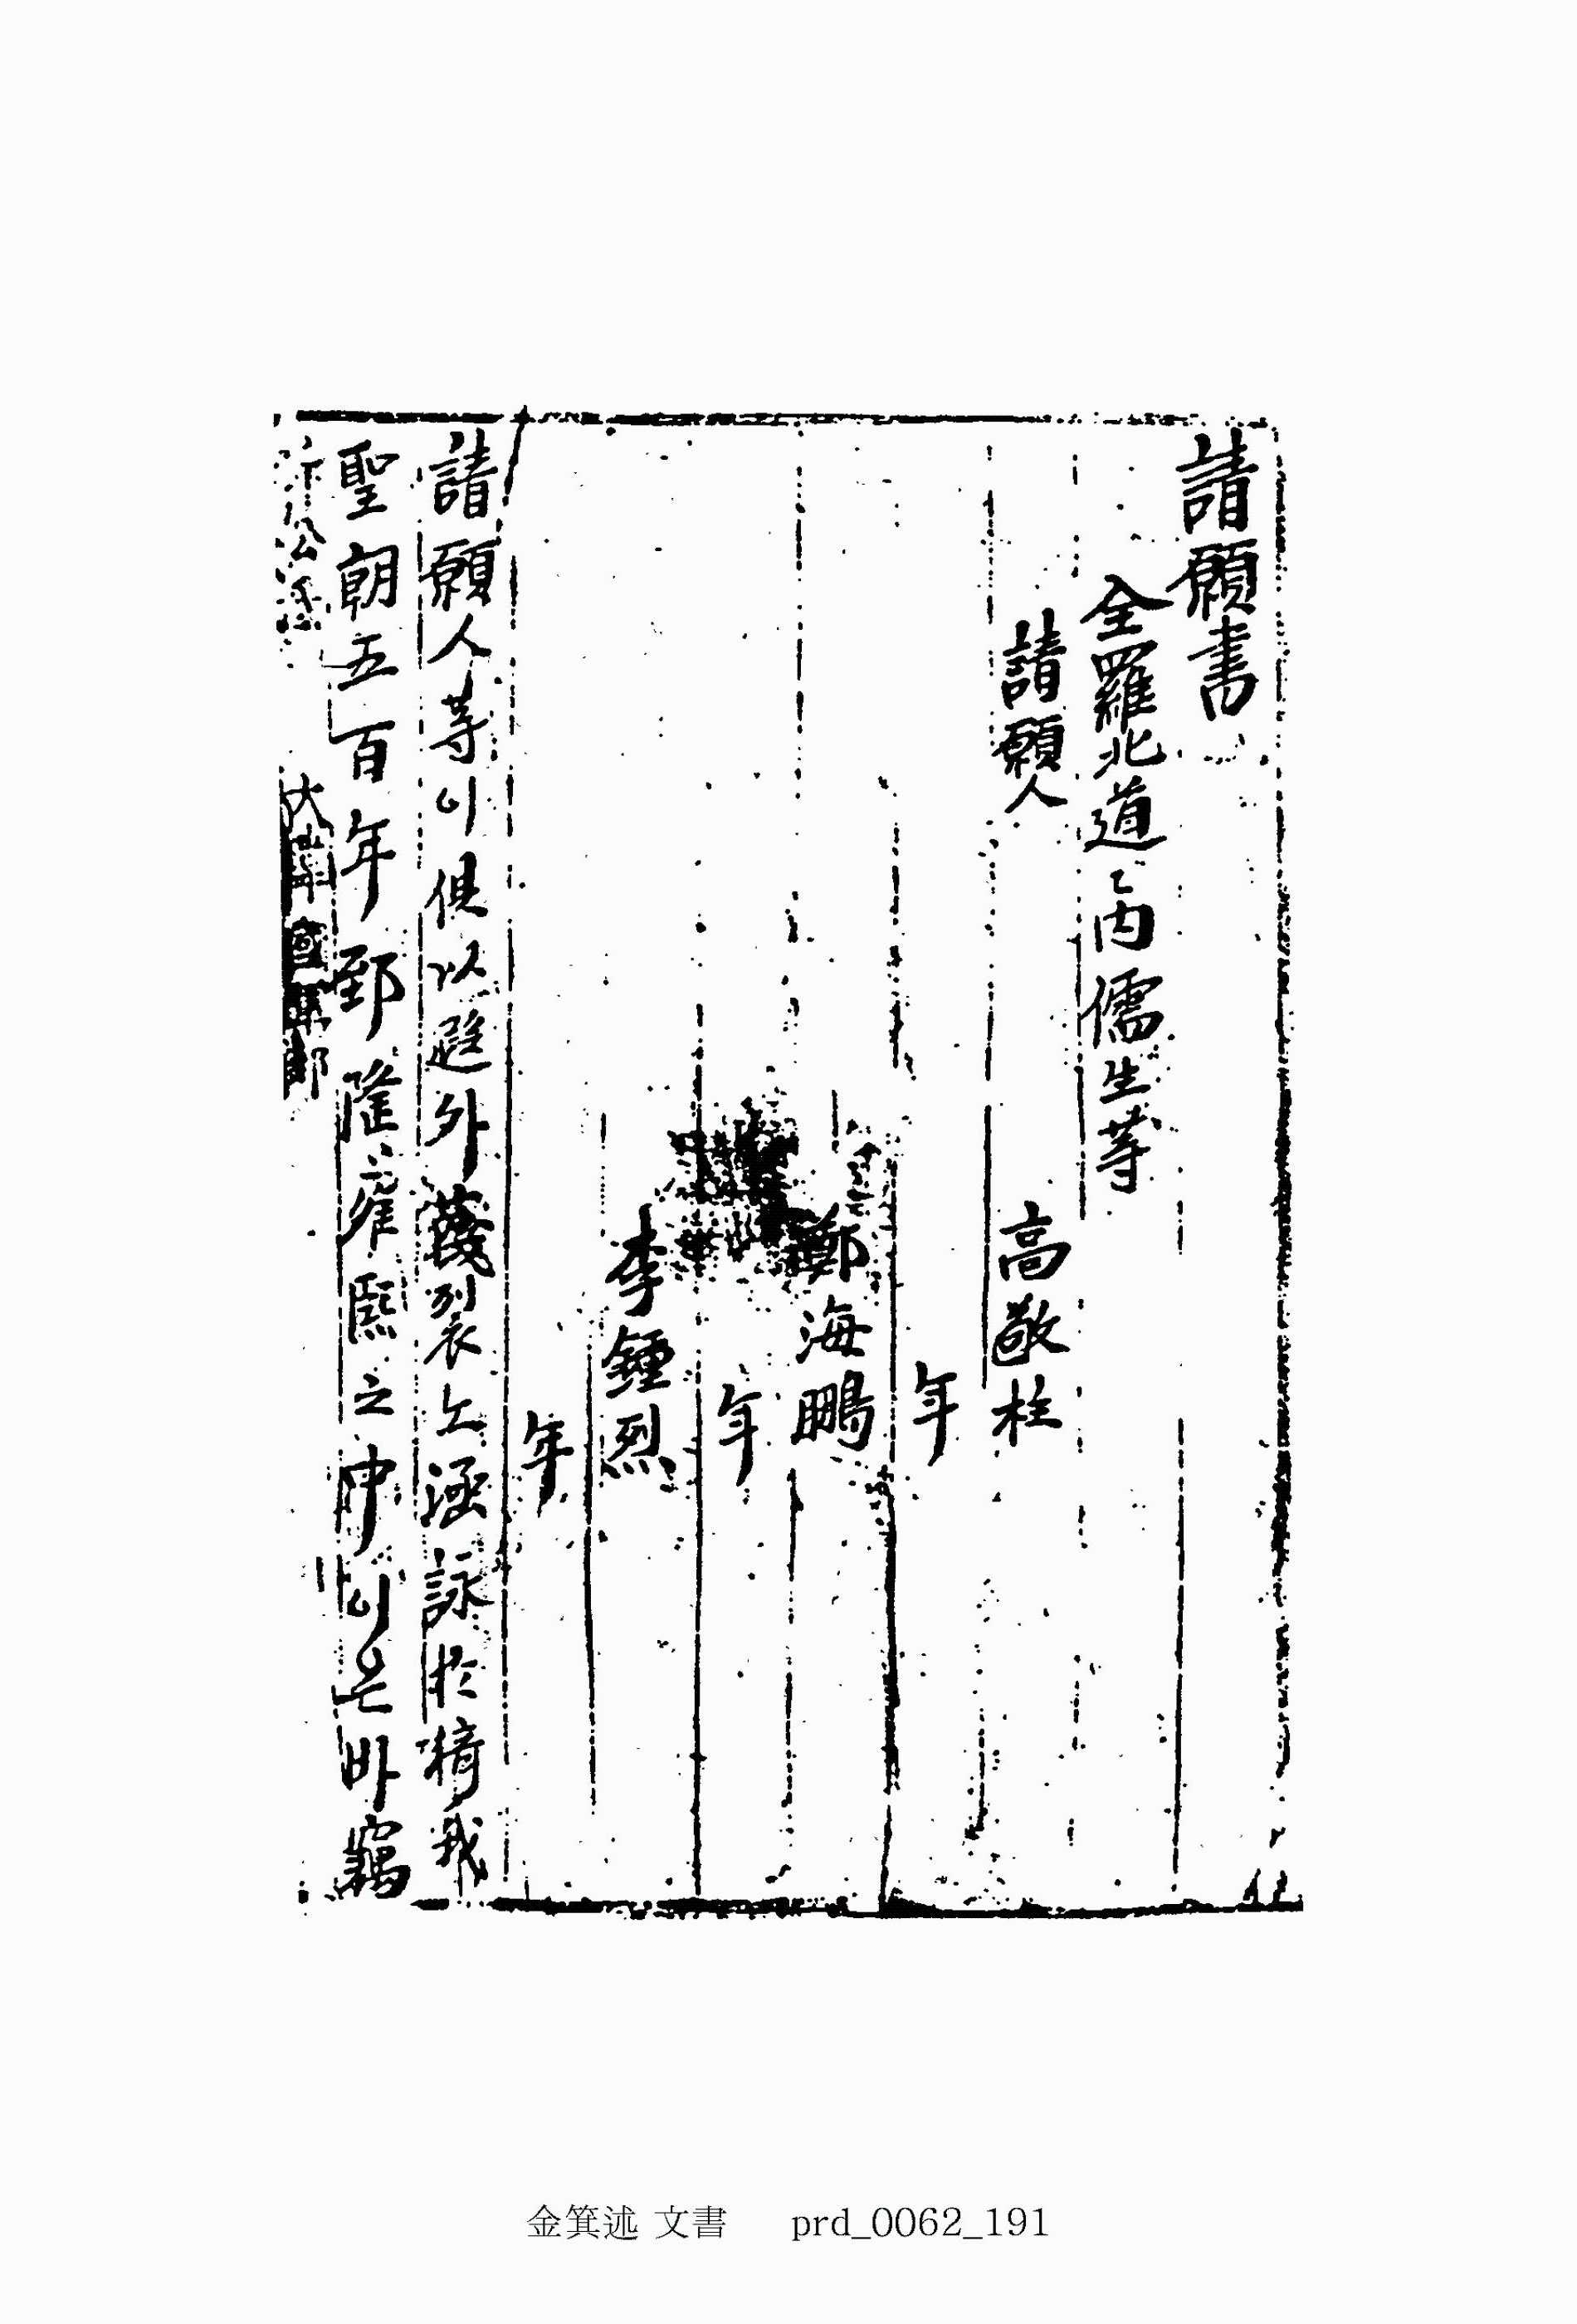 請願書
全羅北道〻內儒生等
請願人 高敬柱
年
鄭海鵬
年
李鍾烈
年
請願人等이俱以遐外蔑裂上涵詠於猗我
聖朝五百年郅隆雍熙之中이온바竊
大韓國
金箕述 文書 prd_0062_191